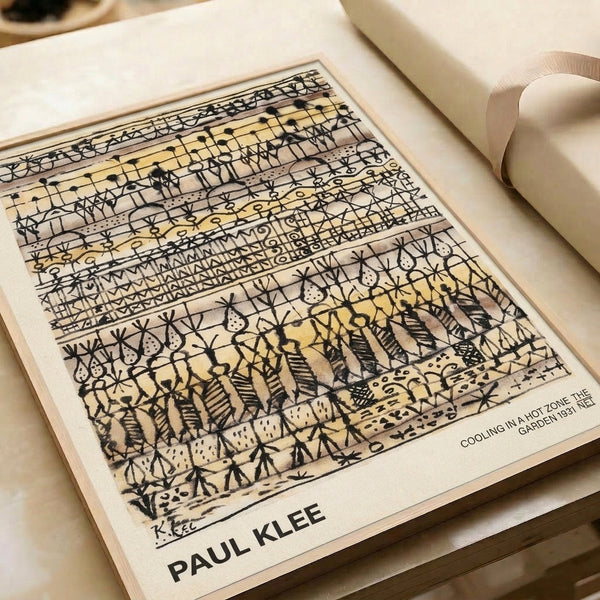 K.KEE
PAUL KLEE
COOLING IN A HOT ZONE THE
GARDEN 1931